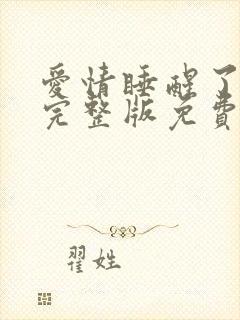 爱情睡醒了
完整版免費
翟姓